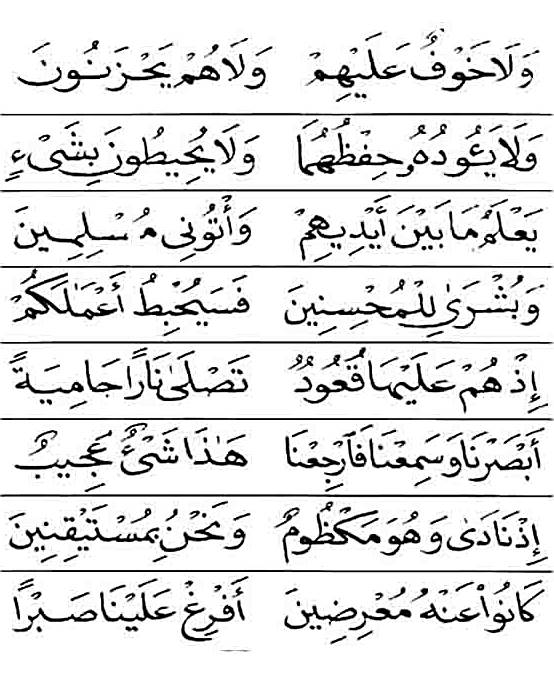 وَلَا خَوْفٌ عَلَيْهِمْ وَلَا هُمْ يَحْزَنُونَ
وَلَا يَـُٔودُهُۥ حِفْظُهُمَا وَلَا يُحِيطُونَ بِشَىْءٍ
يَعْلَمُ مَا بَيْنَ أَيْدِيهِمْ وَأْتُونِى مُسْلِمِينَ
وَبُشْرَىٰ لِلْمُحْسِنِينَ فَسَيُحْبِطُ أَعْمَـٰلَكُمْ
إِذْ هُمْ عَلَيْهَا قُعُودٌ تَصْلَىٰ نَارًا حَامِيَةً
أَبْصَرْنَا وَسَمِعْنَا فَٱرْجِعْنَا هَـٰذَا شَىْءٌ عَجِيبٌ
إِذْ نَادَىٰ وَهُوَ مَكْظُومٌ وَنَحْنُ بِمُسْتَيْقِنِينَ
كَانُوا۟ عَنْهُ مُعْرِضِينَ أَفْرِغْ عَلَيْنَا صَبْرًا